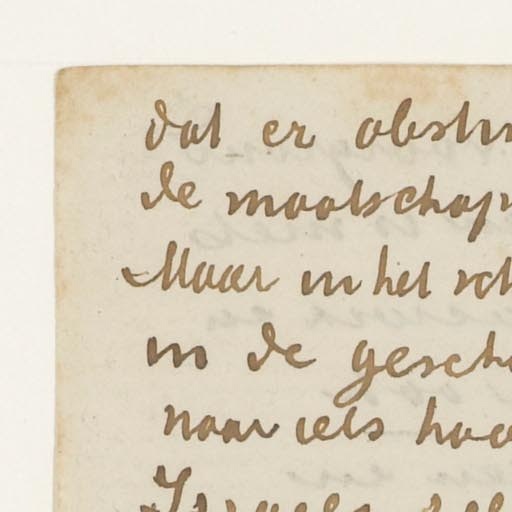 dat er obstr
de maatschap
Maar in het sch
in de gesch
naar iets hoo
Israels